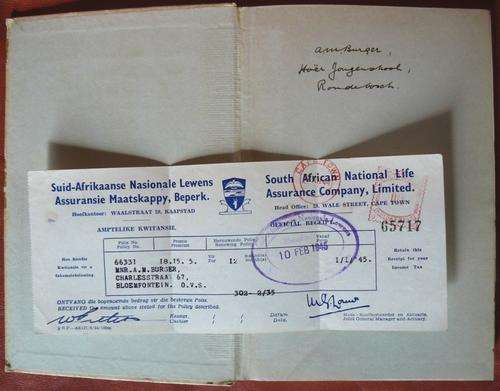 A M Burger,
Hoër Jongenskool,
Rondebosch.
Suid-Afrikaanse Nasionale Lewens
Assuransie Maatskappy, Beperk.
Hoofkantoor: WAALSTRAAT 28, KAAPSTAD
South African National Life
Assurance Company, Limited.
Head Office: 28, WALE STREET, CAPE TOWN
AMPTELIKE KWITANSIE.
OFFICIAL RECEIPT
65717
Polis No.
Policy No.
Premie
Premium
Hernuwende Polis
Renewing Policy
66331 18.15. 5. 12 1/1/'45.
MNR.A.M.BURGER,
CHARLESSTRAAT 67,
BLOEMFONTEIN. O.V.S.
302- 2/35
10 FEB 1945
Retain this
Receipt for your
Income Tax
ONTVANG die bogenoemde bedrag op die beskrewe Polis.
RECEIVED the amount above stated for the Policy described.
Kassier
Cashier
Datum.
Date.
Joint General Manager and Actuary.